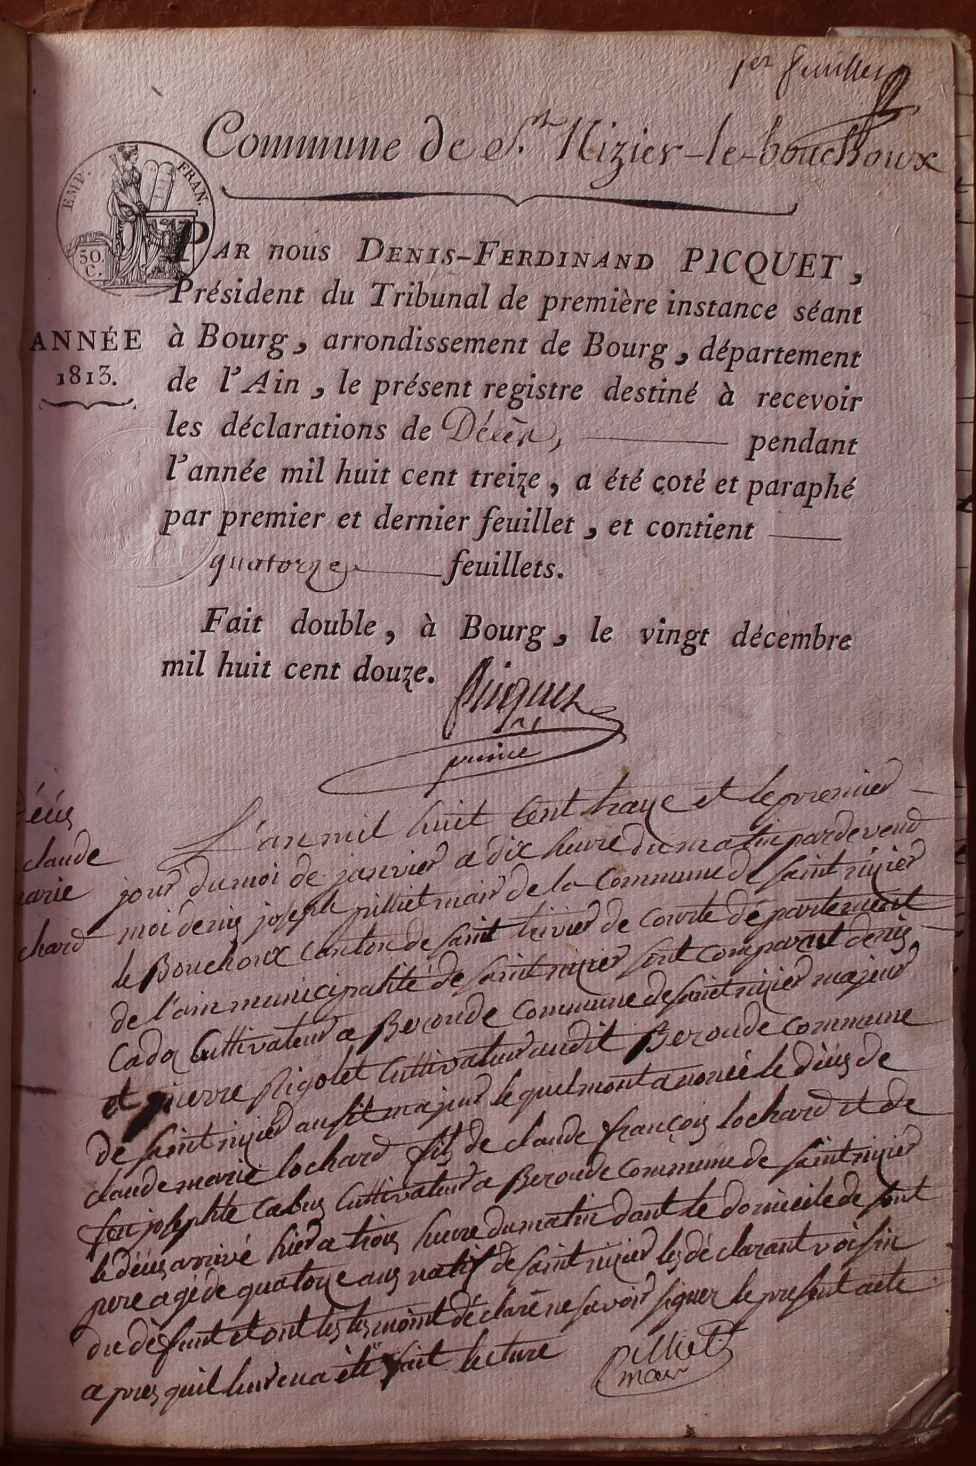 1er feuillet
Commune de St Nizier-le-bouchoux
EMP. FRAN.
50.
C.
PAR nous DENIS-FERDINAND PICQUET,
Président du Tribunal de première instance séant
ANNÉE
1813.
à Bourg, arrondissement de Bourg, département
de l'Ain, le présent registre destiné à recevoir
les déclarations de Décès, pendant
l'année mil huit cent treize, a été coté et paraphé
par premier et dernier feuillet, et contient
quatorze feuillets.
Fait double, à Bourg, le vingt décembre
mil huit cent douze.
Picquet
décés
claude
marie
chard
L'an mil huit cent traize et le premier
jour du moi de janvier a dix heure du matin par devend
moi denis joseph pilliet mair de la Commune de saint nizier
le Bouchoux canton de saint trivier de Courte département
de l'ain municipalité de saint nizier sont comparut denis
Cultivateur a Beroude Commune de saint nizier majeur
et pierre Rigolet Cultivateur audit Beroude commune
de saint nizier aussit majeur lequel mont anoncé le décés de
claude marie lochard fils de claude françois lochard et de
feu josephte Cultivateur a Beroude commune de saint nizier
le décés arrivé hier a trois heure du matin dant le domicile de sont
pere agé de quatorze ans natif de saint nizier les déclarant voisin
du défunt et ont les déclaré ne savoir signer le present acte
apres quil leur en a été fait lecture
Pilliet
mair